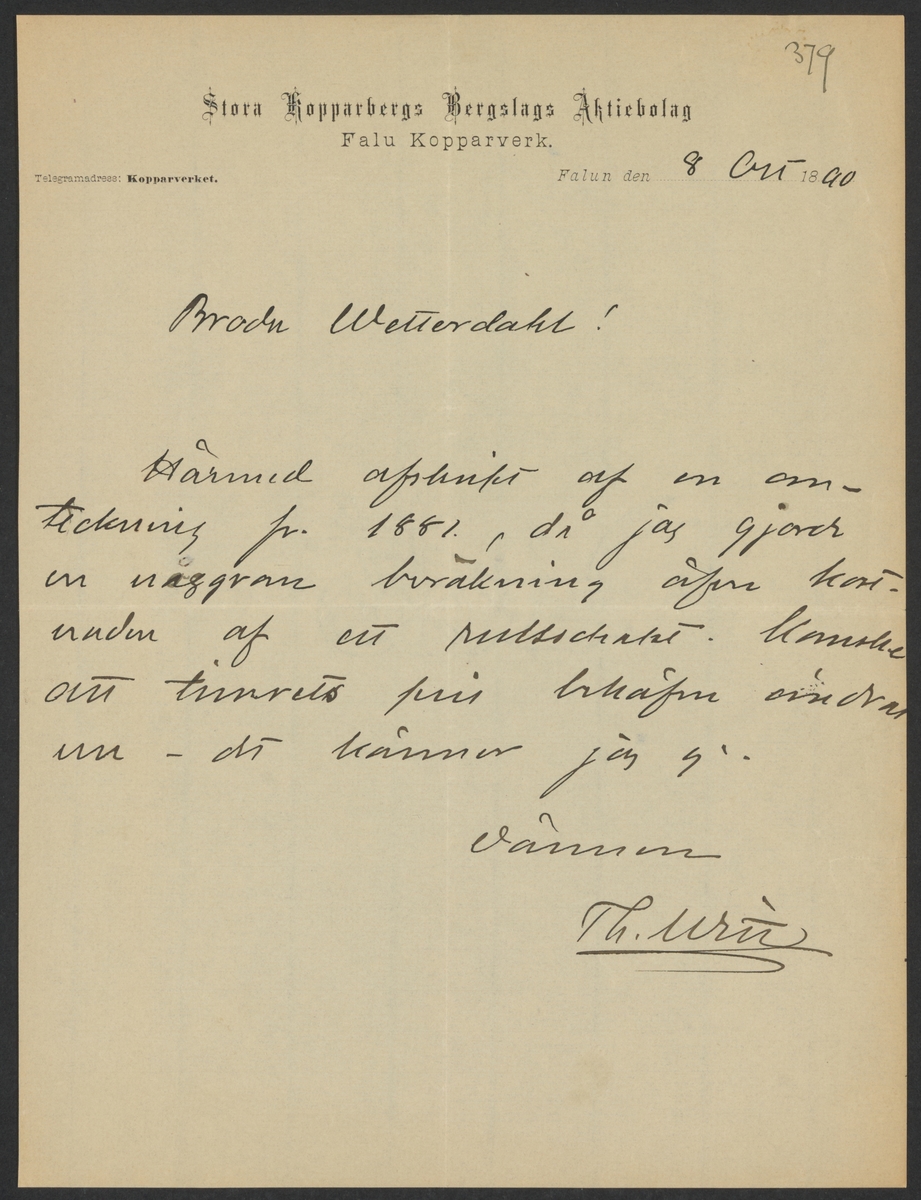 379
Stora Kopparbergs Bergslags Aktiebolag
Falu Kopparverk.
Telegramadress: Kopparverket.
Falun den 8 Oct 1890
Broder Wetterdahl!
Härmed afskrift af en an-
teckning fr. 1881, då jag gjorde
en noggran beräkning öfver kost-
naden af ett rullschakt. Kanske
att timrets pris behöfver ändras
nu – det känner jag ej.
Vännen
Th. Witt